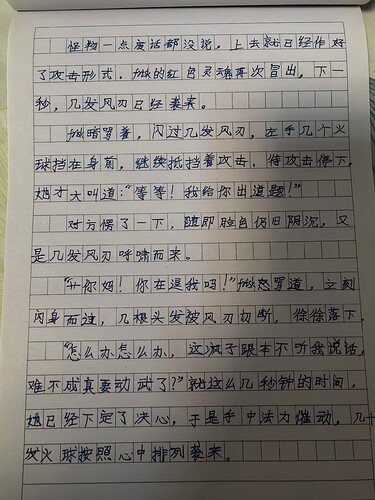 怪物一点废话都没说，上去就已经作好
了攻击形式。她的红色灵魂再次冒出，下一
秒，几发风刃已经袭来。
她暗骂着，闪过几发风刃，左手几个火
球挡在身前，继续抵挡着攻击。待攻击停下，
她才大叫道："等等！我给你出道题！"
对方愣了一下，随即脸色仍旧阴沉，又
是几发风刃呼啸而来。
"艹你妈！你在逗我吗！"她怒骂道，立刻
闪身而过，几根头发被风刃切断，徐徐落下。
"怎么办怎么办，这疯子跟本不听我说话，
难不成真要动武了？"就这么几秒钟的时间，
她已经下定了决心，于是手中法力催动，几十
发火球按照心中排列袭来。